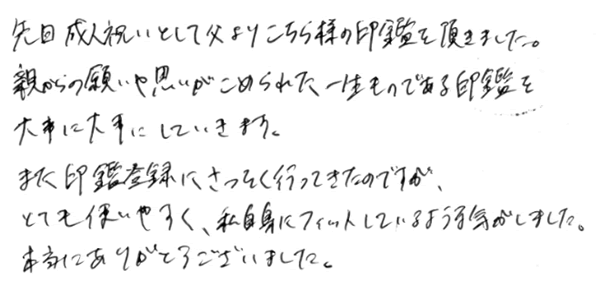 先日成人祝いとして父よりこちら様の印鑑を頂きました。
親からの願いや思いがこめられた一生ものである印鑑を
大事に大事にしていきます。
また印鑑登録にさっそく行ってきたのですが、
とても使いやすく、私自身にフィットしているような気がしました。
本当にありがとうございました。